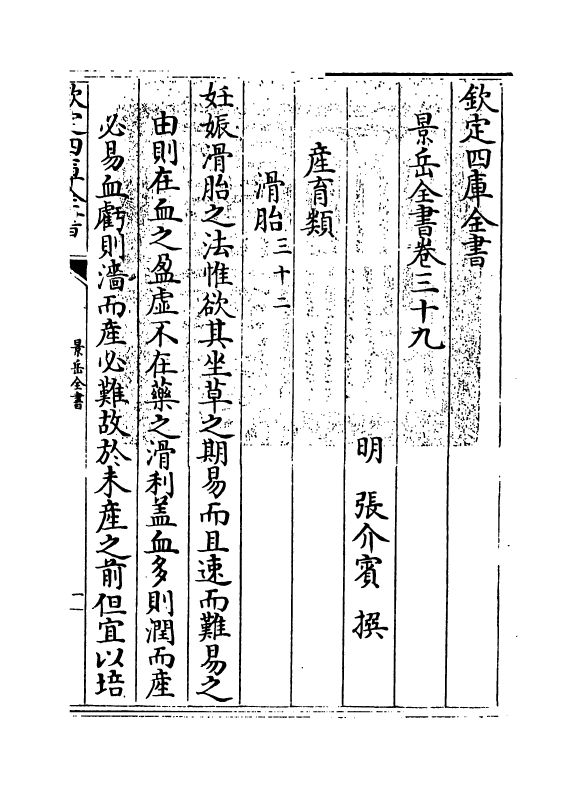 欽定四庫全書
景岳全書卷三十九
明 張介賓 撰
産育類
滑胎三十二
妊娠滑胎之法惟欲其坐草之期易而且速而難易之
由則在血之盈虛不在藥之滑利葢血多則潤而産
必易血虧則濇而産必難故於未産之前但宜以培
欽定四庫全書
景岳全書